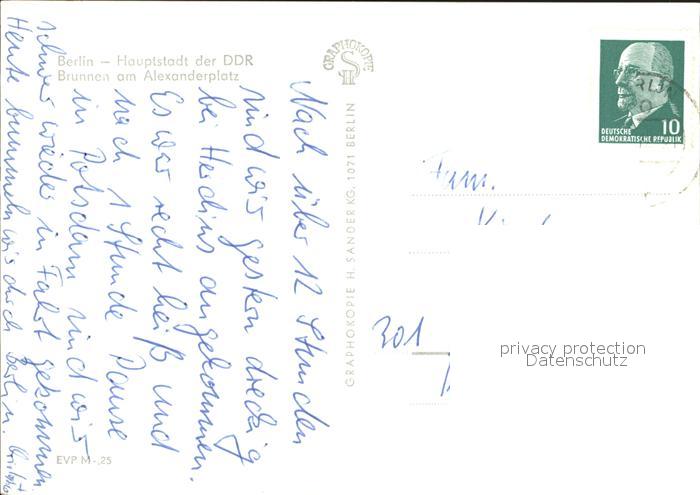 Berlin – Hauptstadt der DDR
Brunnen am Alexanderplatz
GRAPHOKOPIE
H S
DEUTSCHE
DEMOKRATISCHE REPUBLIK
10
Nach über 12 Stunden
sind wir gestern dreckig
bei Heidins angekommen.
Es war recht heiß und
nach 1 Stunde Pause
in Potsdam sind wir
schwer wieder in Fahrt gekommen.
Heute bummeln wir durch Berlin.
GRAPHOKOPIE H. SANDER KG, 1071 BERLIN
Fam.
301
privacy protection
Datenschutz
EVP M -,25